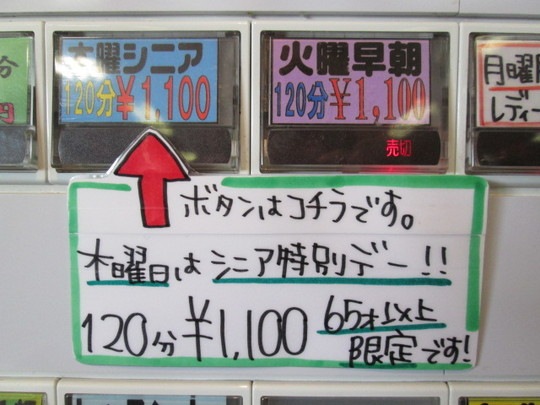 分
円
木曜シニア
120分¥1,100
火曜早朝
120分¥1,100
売切
月曜
レディー
ボタンはコチラです。
木曜日はシニア特別デー!!
120分¥1,100
65才以上
限定です!